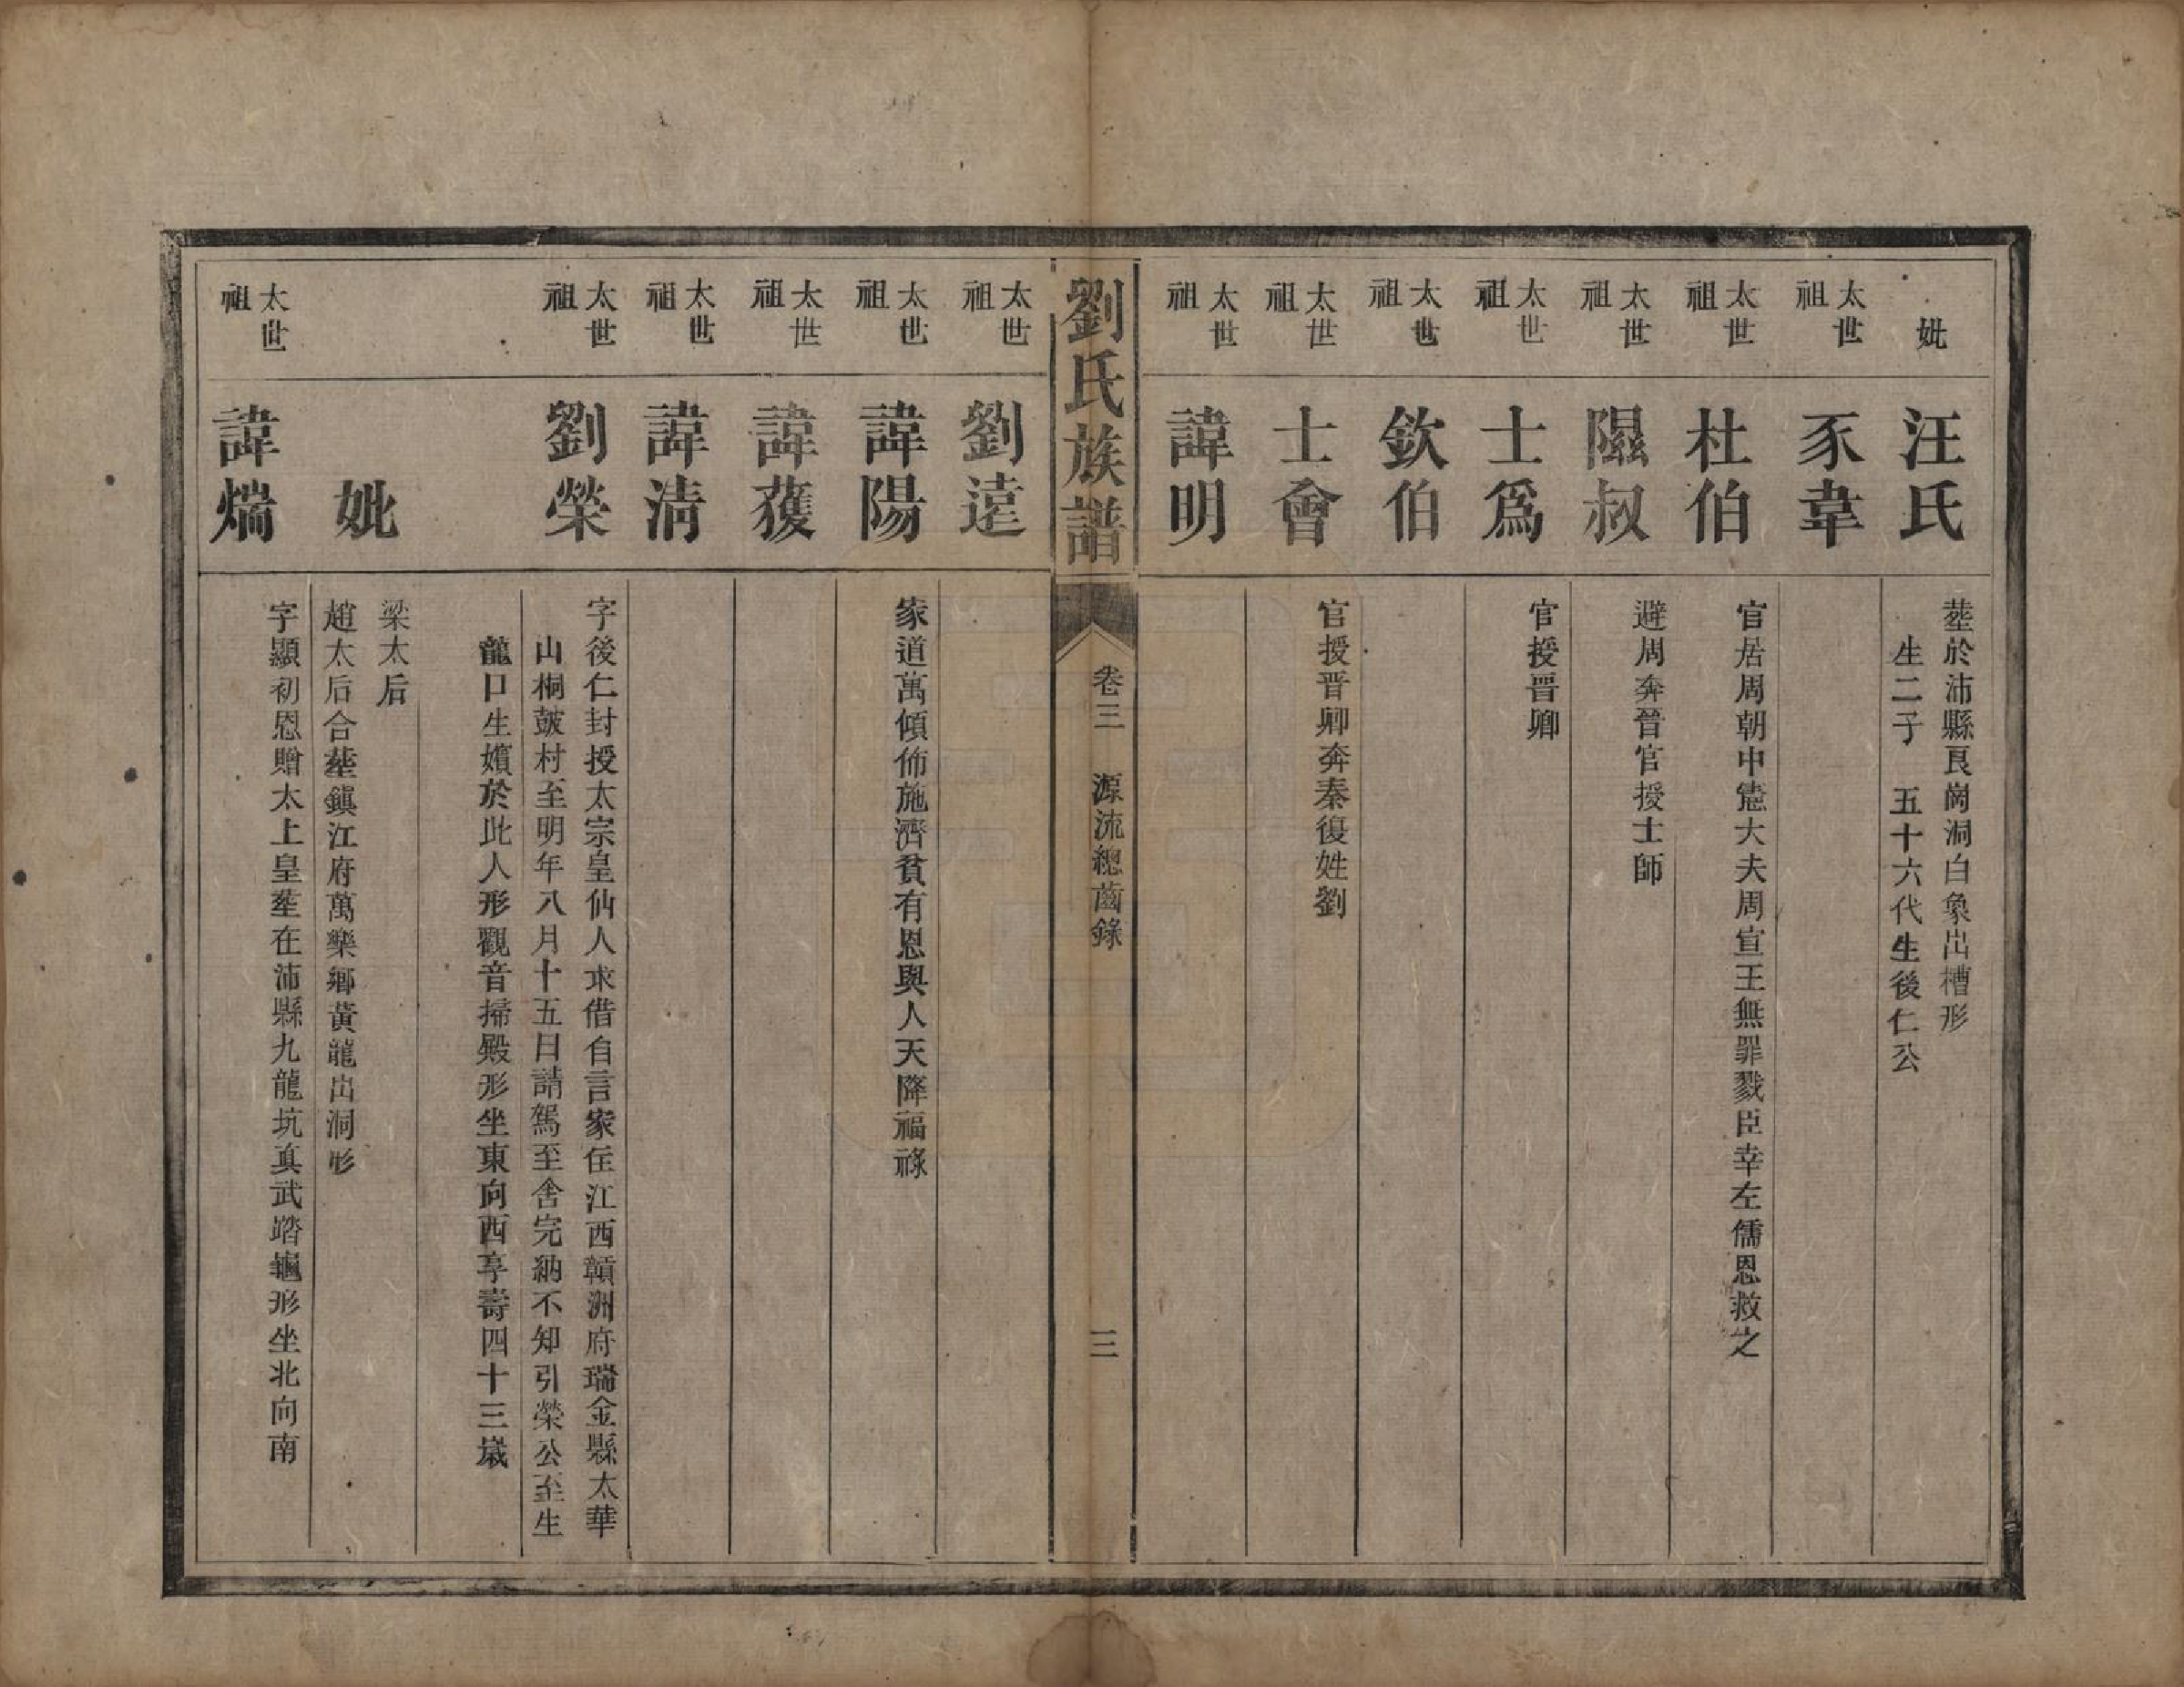 妣
汪氏
塟於沛縣艮崗洞白象出槽形
生二子　五十六代生後仁公
太世祖
豕韋
太世祖
杜伯
官居周朝中憲大夫周宣王無罪戮臣幸左儒恩救之
太世祖
隰叔
避周奔晉官授士師
太世祖
士爲
官授晋卿
太世祖
欽伯
太世祖
士會
官授晋卿奔秦復姓劉
太世祖
諱明
劉氏族譜
卷三　源流總齒錄
三
太世祖
劉遠
太世祖
諱陽
家道萬傾佈施濟貧有恩與人天降福祿
太世祖
諱獲
太世祖
諱清
太世祖
劉榮
字後仁封授太宗皇仙人求借自言家住江西贛洲府瑞金縣太華
山桐皷村至明年八月十五日請駕至舍完納不知引榮公至生
龍口生㜹於此人形觀音掃殿形坐東向西享壽四十三歲
妣
梁太后
趙太后合塟鎮江府萬樂鄉黃龍出洞形
太世祖
諱煓
字顯初恩贈太上皇塟在沛縣九龍坑真武踏龜形坐北向南